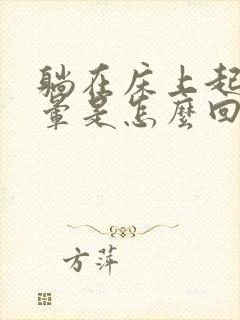 躺在床上起
暈是怎麼回
方萍